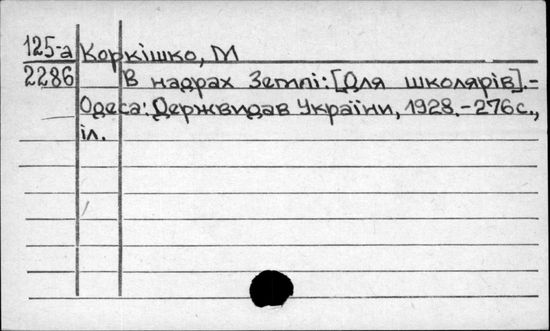 125-а Коркішко, М
2286 В надрах Землі: [Для школярів].-
Одеса: Держвидав України, 1928.-276с.,
іл.